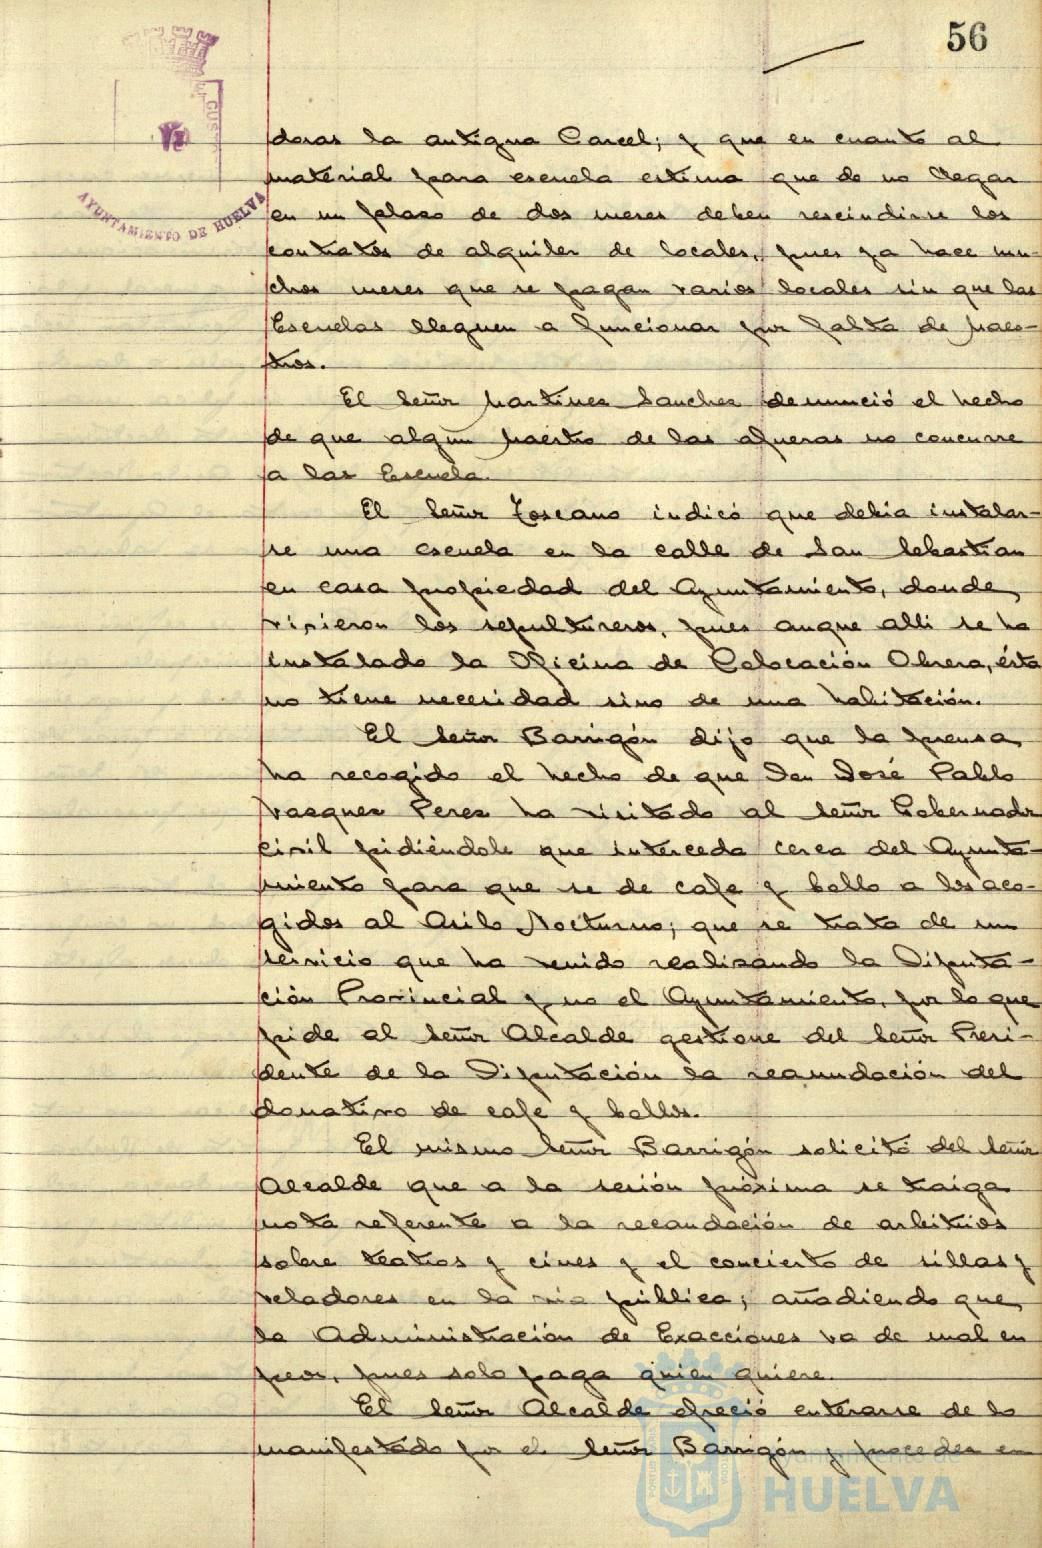 56
AYUNTAMIENTO DE HUELVA
doras la antigua Carcel; y que en cuanto al
material para escuela estima que de no llegar
en un plazo de dos meses deben rescindirse los
contratos de alquiler de locales, pues ya hace mu-
chos meses que se pagan varios locales sin que las
Escuelas lleguen a funcionar por falta de maes-
tros.
El Señor Martinez Sanchez denunció el hecho
de que algun maestro de las afueras no concurre
a las Escuela.
El Señor Toscano indicó que debia instalar-
se una escuela en la calle de San Sebastian
en casa propiedad del Ayuntamiento, donde
vivieron los sepultureros, pues aunque alli se ha
instalado la Oficina de Colocación Obrera, ésta
no tiene necesidad sino de una habitación.
El Señor Barrigón dijo que la prensa
ha recogido el hecho de que Don José Pablo
Vazquez Perez ha visitado al Señor Gobernador
civil pidiéndole que interceda cerca del Ayunta-
miento para que se de cafe y bollo a los aco-
gidos al Asilo Nocturno; que se trata de un
servicio que ha venido realizando la Diputa-
ción Provincial y no el Ayuntamiento, por lo que
pide al Señor Alcalde gestione del Señor Presi-
dente de la Diputación la reanudación del
donativo de cafe y bollos.
El mismo Señor Barrigón solicitó del Señor
Alcalde que a la sesión próxima se traiga
nota referente a la recaudación de arbitrios
sobre teatros y cines y el concierto de sillas y
veladores en la via pública; añadiendo que
la Administración de Exacciones va de mal en
peor, pues solo paga quien quiere.
El Señor Alcalde ofreció enterarse de lo
manifestado por el Señor Barrigón y proceder en
Ayuntamiento de
HUELVA